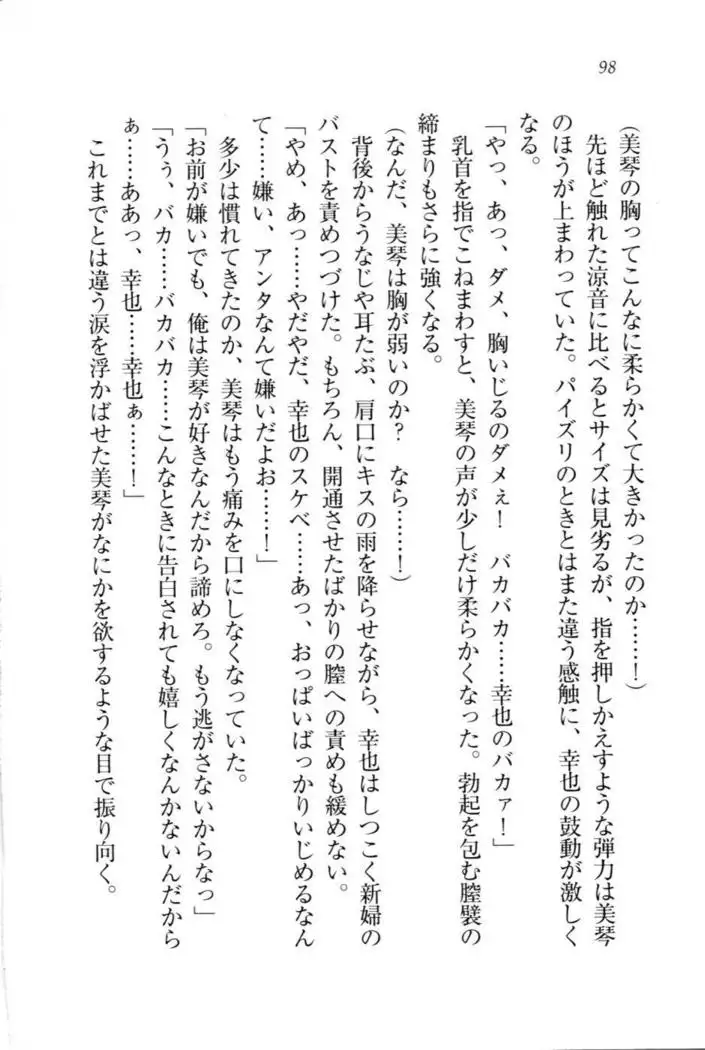 98
(美琴の胸ってこんなに柔らかくて大きかったのか……!)
先ほど触れた涼音に比べるとサイズは見劣るが、指を押しかえすような弾力は美琴
のほうが上まわっていた。パイズリのときとはまた違う感触に、幸也の鼓動が激しく
なる。
「やっ、あっ、ダメ、胸いじるのダメぇ! バカバカ……幸也のバカァ!」
乳首を指でこねまわすと、美琴の声が少しだけ柔らかくなった。勃起を包む膣襞の
締まりもさらに強くなる。
(なんだ、美琴は胸が弱いのか? なら……!)
背後からうなじや耳たぶ、肩口にキスの雨を降らせながら、幸也はしつこく新婦の
バストを責めつづけた。もちろん、開通させたばかりの膣への責めも緩めない。
「やめ、あっ……やだやだ、幸也のスケベ……あっ、おっぱいばっかりいじめるなん
て……嫌い、アンタなんて嫌いだよお……!」
多少は慣れてきたのか、美琴はもう痛みを口にしなくなっていた。
「お前が嫌いでも、俺は美琴が好きなんだから諦めろ。もう逃がさないからなっ」
「うぅ、バカ……バカバカ……こんなときに告白されても嬉しくなんかないんだから
ぁ……ああっ、幸也……幸也ぁ……!」
これまでとは違う涙を浮かばせた美琴がなにかを欲するような目で振り向く。